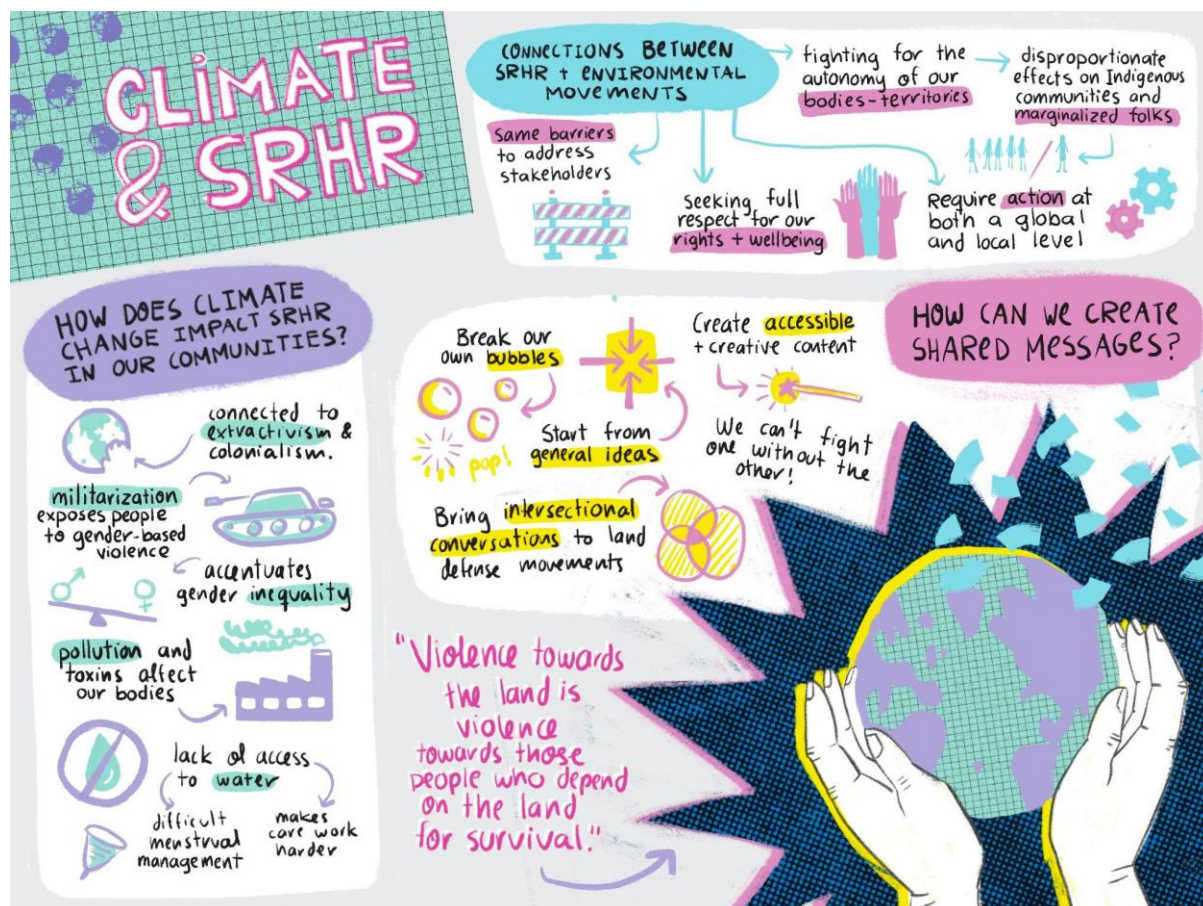 CLIMATE
& SRHR
CONNECTIONS BETWEEN
SRHR + ENVIRONMENTAL
MOVEMENTS
fighting for the
autonomy of our
bodies-territories
disproportionate
effects on Indigenous
communities and
marginalized folks
Same barriers
to address
stakeholders
Seeking full
respect for our
rights + wellbeing
Require action at
both a global
and local level
HOW DOES CLIMATE
CHANGE IMPACT SRHR
IN OUR COMMUNITIES?
connected to
extractivism &
colonialism.
militarization
exposes people
to gender-based
violence
accentuates
gender inequality
pollution and
toxins affect
our bodies
lack of access
to water
difficult
menstrual
management
makes
care work
harder
HOW CAN WE CREATE
SHARED MESSAGES?
Break our
own bubbles
pop!
Start from
general ideas
Create accessible
+ creative content
We can't fight
one without the
other!
Bring intersectional
conversations to land
defense movements
"Violence towards
the land is
violence
towards those
people who depend
on the land
for survival."